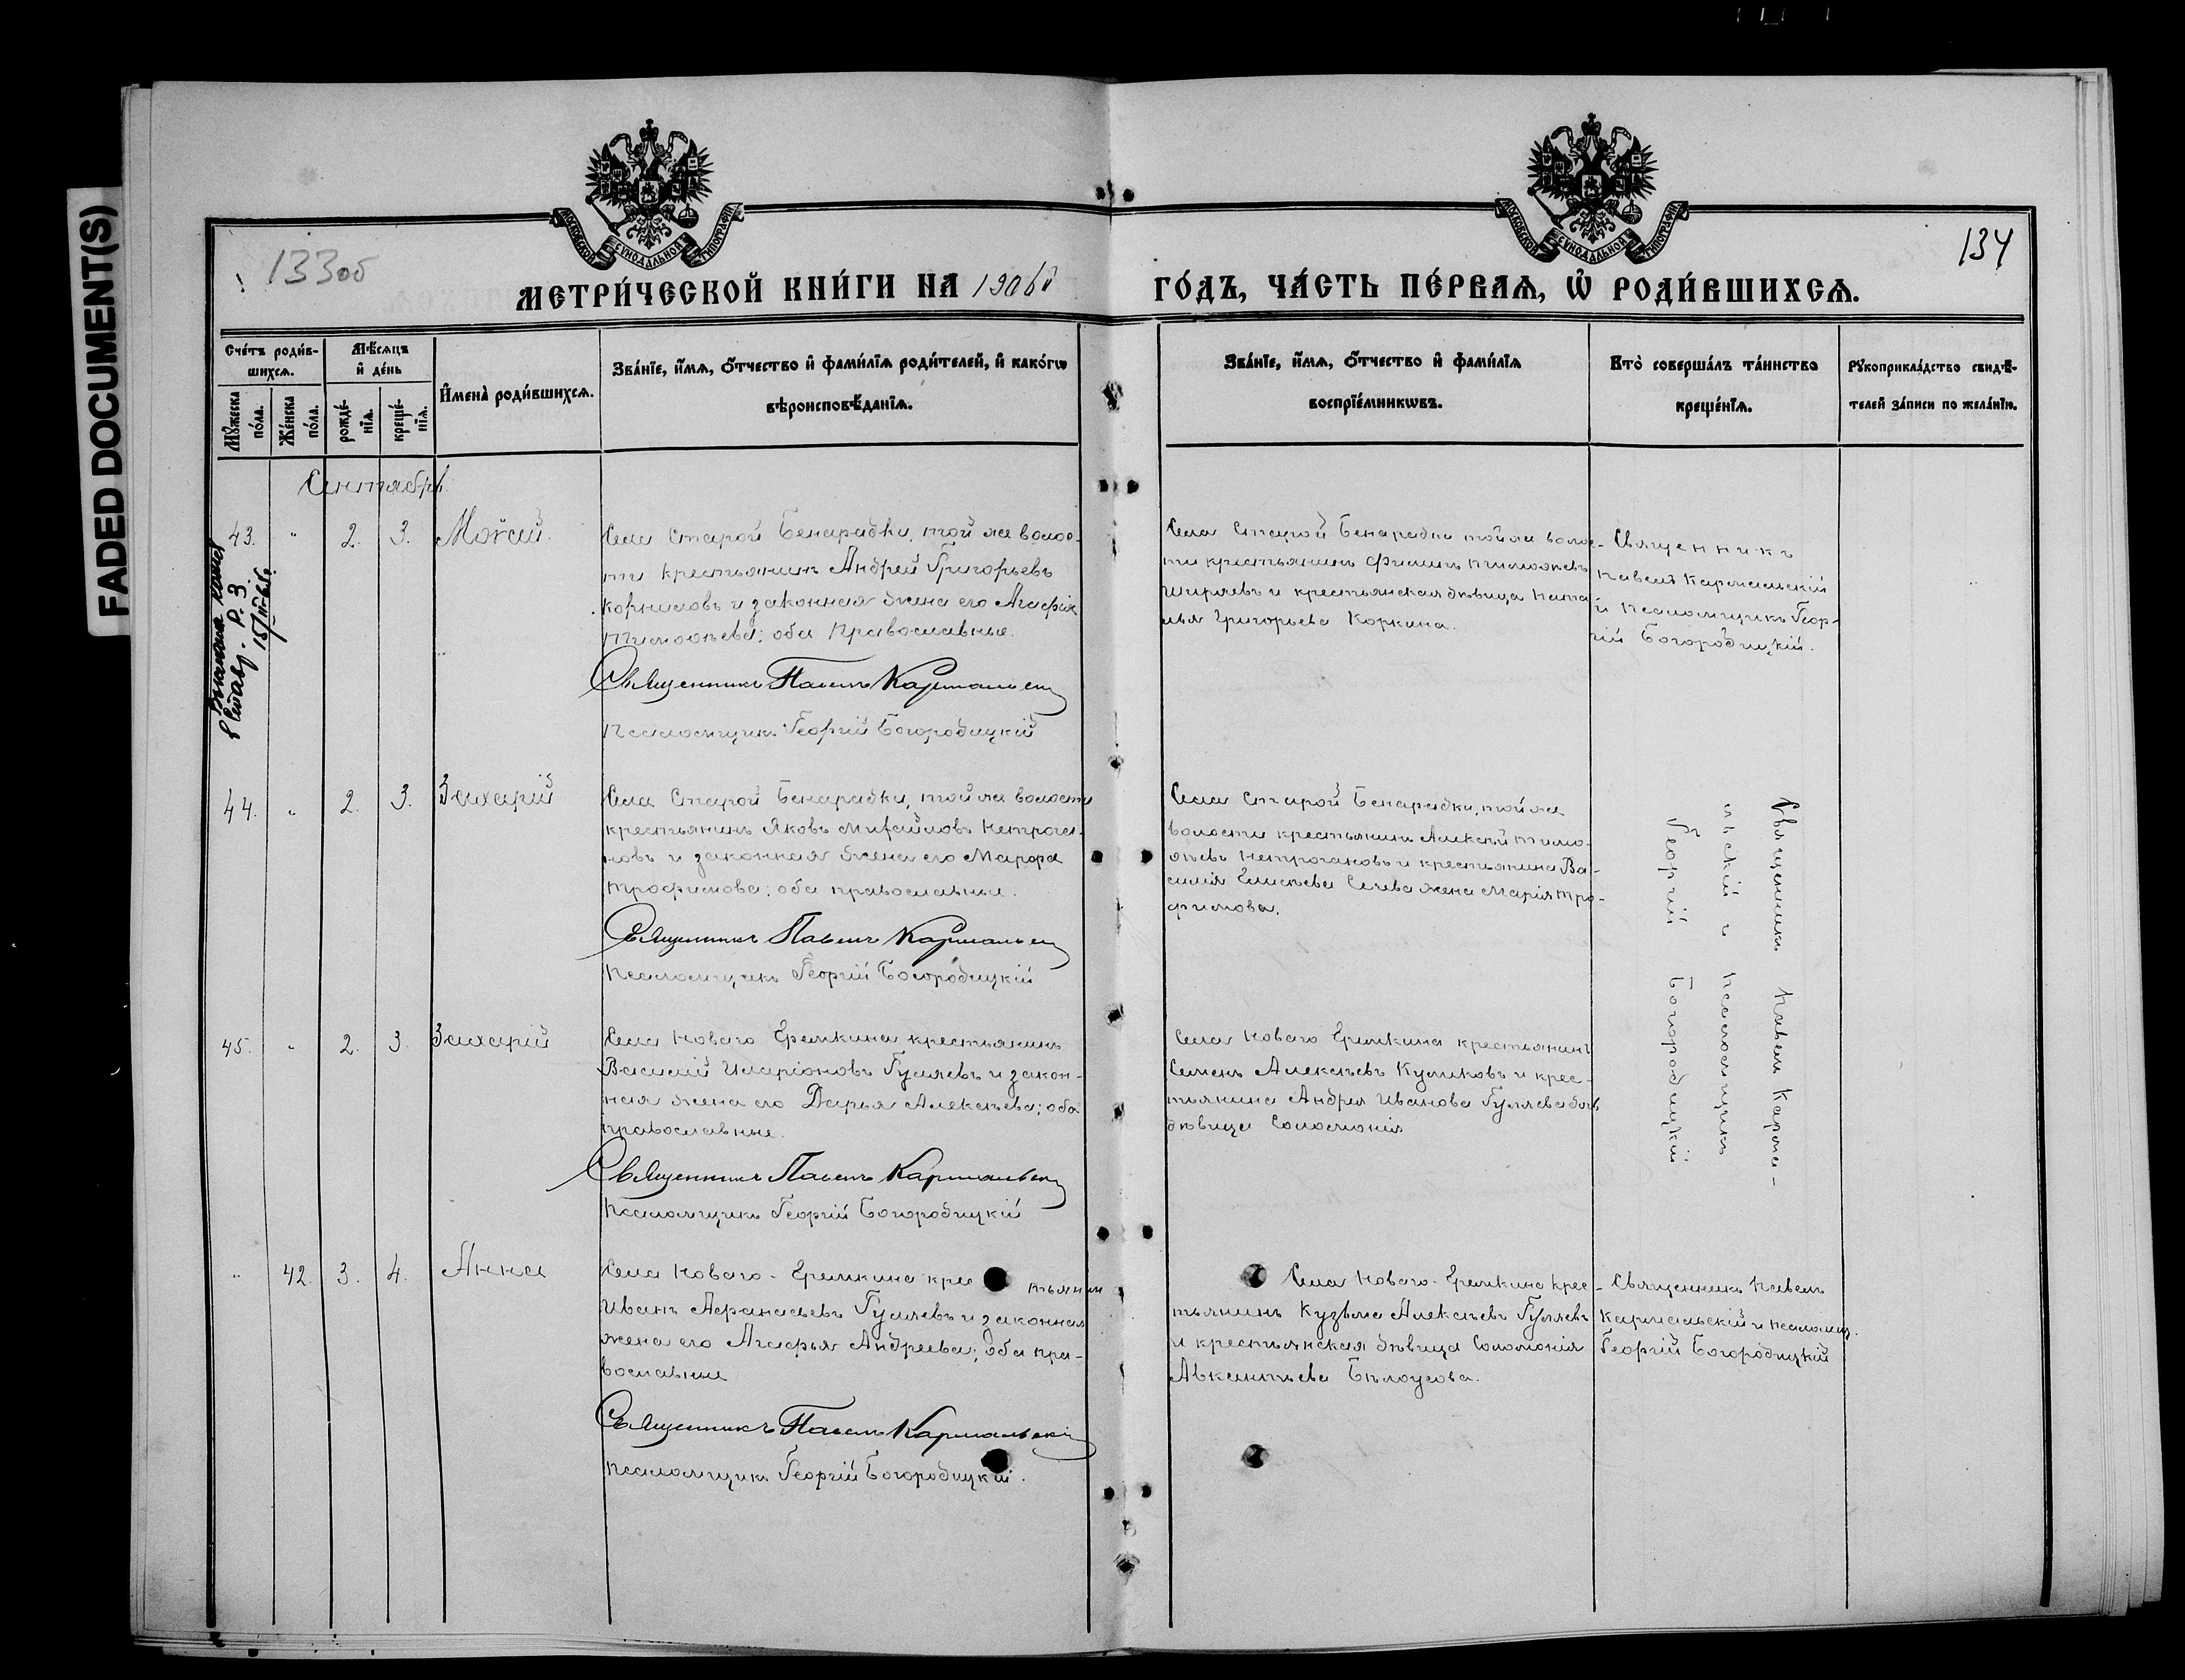 FADED DOCUMENT(S)
133об
134
МОСКОВСКОЙ СУНОДАЛЬНОЙ ТИПОГРАФІИ
МОСКОВСКОЙ СУНОДАЛЬНОЙ ТИПОГРАФІИ
МЕТРИ́ЧЕСКОЙ КНИ́ГИ НА 1906й ГО́ДЪ, ЧА́СТЬ ПЕ́РВАѦ, Ѡ҆ РОДИ́ВШИХСѦ.
Сче́тъ роди́в-
шихсѧ.
Мѣ́сѧцъ
и҆ де́нь
Мꙋ́жеска
по́ла.
Же́нска
по́ла.
рожде́-
нїѧ.
креще́-
нїѧ.
И҆мена̀ роди́вшихсѧ.
Зва́нїе, и҆́мѧ, ѻ҆́тчество и҆ фами́лїѧ роди́телей, и҆ како́гѡ
вѣроисповѣ́данїѧ.
Зва́нїе, и҆́мѧ, ѻ҆́тчество и҆ фами́лїѧ
воспрїе́мникѡвъ.
Кто̀ соверша́лъ та́инство
креще́нїѧ.
Рꙋкоприкла́дство свидѣ́-
телей за́писи по жела́нїю.
Сентябрь
43. " 2. 3. Моѵсей.
Села Старой Бинарадки, той же волос-
ти крестьянинъ Андрей Григорьевъ
Корниловъ и законная жена его Агафія
Тимофѣева; оба православные.
Священникъ Павелъ Кармальск
Псаломщикъ Георгій Богородицкій
Села Старой Бинарадки той же волос-
ти крестьянинъ Филипъ Тимофѣевъ
Ширяевъ и крестьянская дѣвица Ната-
лья Григорьева Коркина.
Священникъ
Павелъ Кармальскій
и Псаломщикъ Геор-
гій Богородицкій.
18/II-65г.
44. " 2. 3. Захарій
Села Старой Бинарадки, той же волости
крестьянинъ Яковъ Михайловъ
и законная жена его Марфа
Трофимова; оба православные.
Священникъ Павелъ Кармальск
Псаломщикъ Георгій Богородицкій
Села Старой Бинарадки, той же
волости крестьянинъ Алексѣй Тимо-
фѣевъ и крестьянина Ва-
силія Елисѣева жена Марія Тро-
фимова.
Священникъ Павелъ Карма-
льскій и Псаломщикъ
Георгій Богородицкій
45. " 2. 3. Захарій
Села Новаго Еремкина крестьянинъ
Василій Иларіоновъ Гуляевъ и закон-
ная жена его Дарья Алексѣева; оба
православные.
Священникъ Павелъ Кармальск
Псаломщикъ Георгій Богородицкій
Села Новаго Еремкина крестьянинъ
Семенъ Алексѣевъ Куликовъ и крес-
тьянина Андрея Иванова Гуляева дочь
дѣвица Соломонія
" 42. 3. 4. Анна
Села Новаго-Еремкина крестьянин
Иванъ Афанасьевъ Гуляевъ и законная
жена его Агафья Андреева; оба пра-
вославные
Священникъ Павелъ Кармальскій
Псаломщикъ Георгій Богородицкій.
Села Новаго-Еремкина крес-
тьянинъ Кузьма Алексѣевъ Гуляевъ
и крестьянская дѣвица Соломонія
Авксентьева Бѣлоусова.
Священникъ Павелъ
Кармальскій и псаломщ.
Георгій Богородицкій